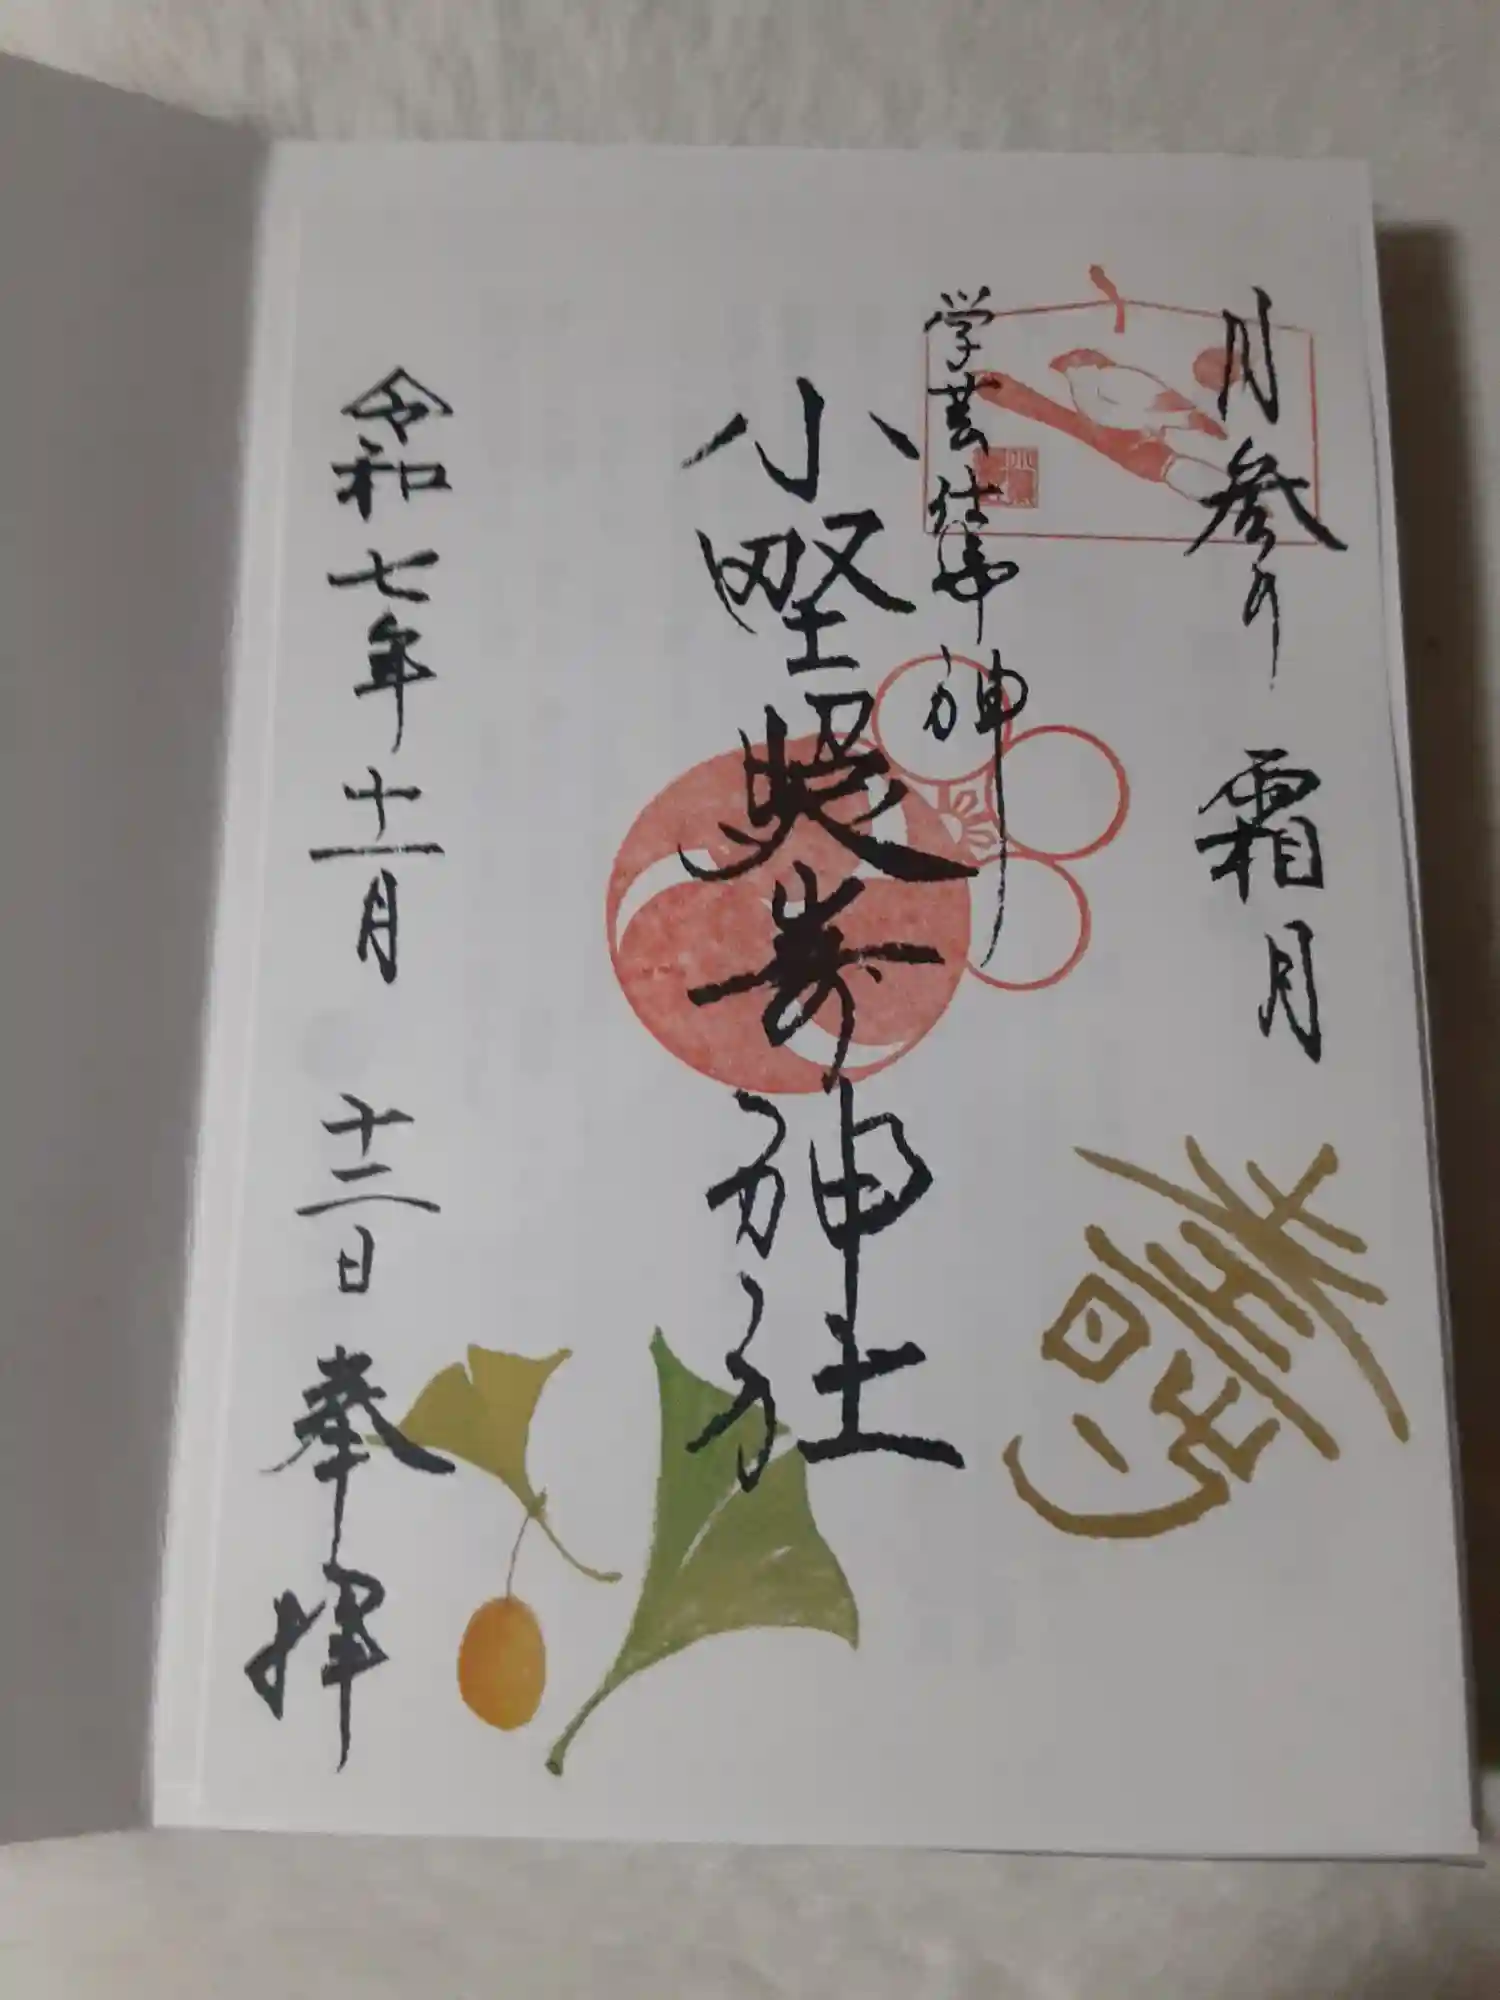 月参り 霜月
学芸仕事神
小野照崎神社
令和七年十一月 十二日 奉拝
壽